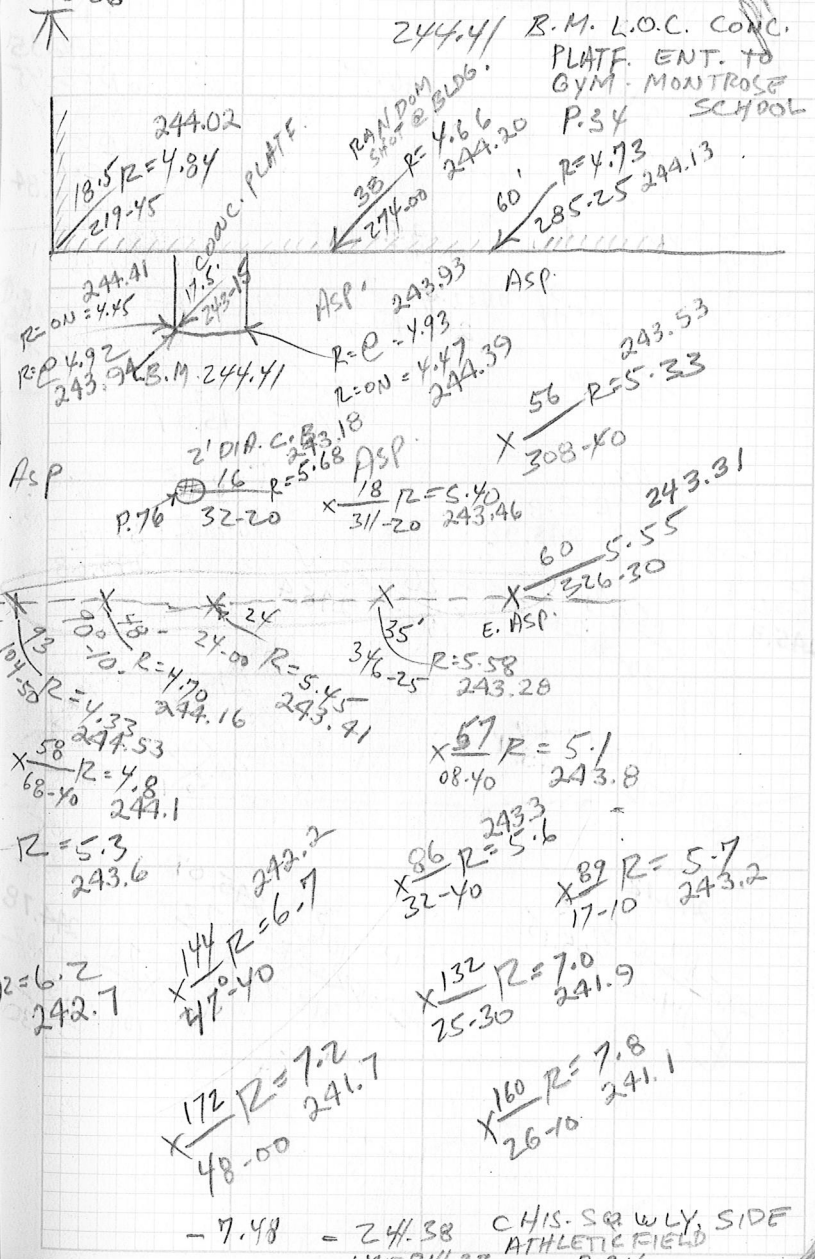 244.41 B.M. L.O.C. CONC.
PLATF. ENT. TO
GYM. MONTROSE
SCHOOL
P.34
244.02
18.5 R=4.84
219-45
CONC. PLATF.
RANDOM
SHOT @ BLDG.
38 R=4.66
274-00 244.20
60' R=4.73
285-25 244.13
244.41
R=ON=4.45
17.5'
243-15
R=@ 4.92
243.94
B.M. 244.41
ASP.
243.93
R=@=4.93
R=ON=4.47
244.39
ASP.
243.53
X 56 R=5.33
308-40
ASP
2' DIA. C.B.
243.18
16 R=5.68
P.76 32-20
ASP.
X 18 R=5.40
311-20 243.46
243.31
X 60 5.55
326-30
E. ASP.
X 93
104-50 R=4.33
244.53
X
R=4.70
244.16
X 24
24-00 R=5.45
243.41
X 35'
346-25 R=5.58
243.28
X 58 R=4.8
68-40 244.1
X 57 R=5.1
08-40 243.8
R=5.3
243.6
243.3
X 86 R=5.6
32-40
X 89 R=5.7
17-10 243.2
242.2
X 144 R=6.7
47°-40
R=6.2
242.7
X 132 R=7.0
25-30 241.9
X 172 R=7.2
48-00 241.7
X 160 R=7.8
26-10 241.1
-7.48 = 241.38 CHIS. SQ. WLY. SIDE
ATHLETIC FIELD